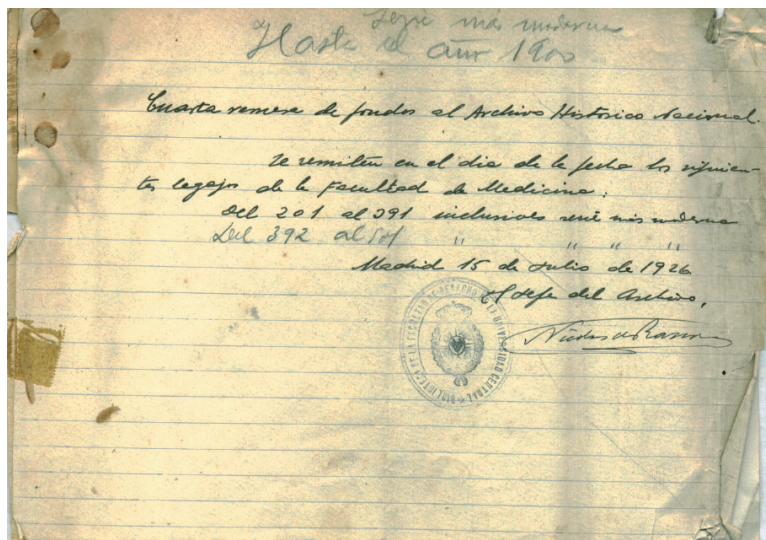 Serie más moderna
Hasta el año 1900
Cuarta remesa de fondos al Archivo Histórico Nacional.
Se remiten en el dia de la fecha los siguien-
tes legajos de la Facultad de Medicina:
Del 201 al 391 inclusives serie más moderna
Del 392 al " " " "
Madrid 15 de Julio de 1926
El Jefe del Archivo,
BIBLIOTECA DE LA FACULTAD DE DERECHO UNIVERSIDAD CENTRAL